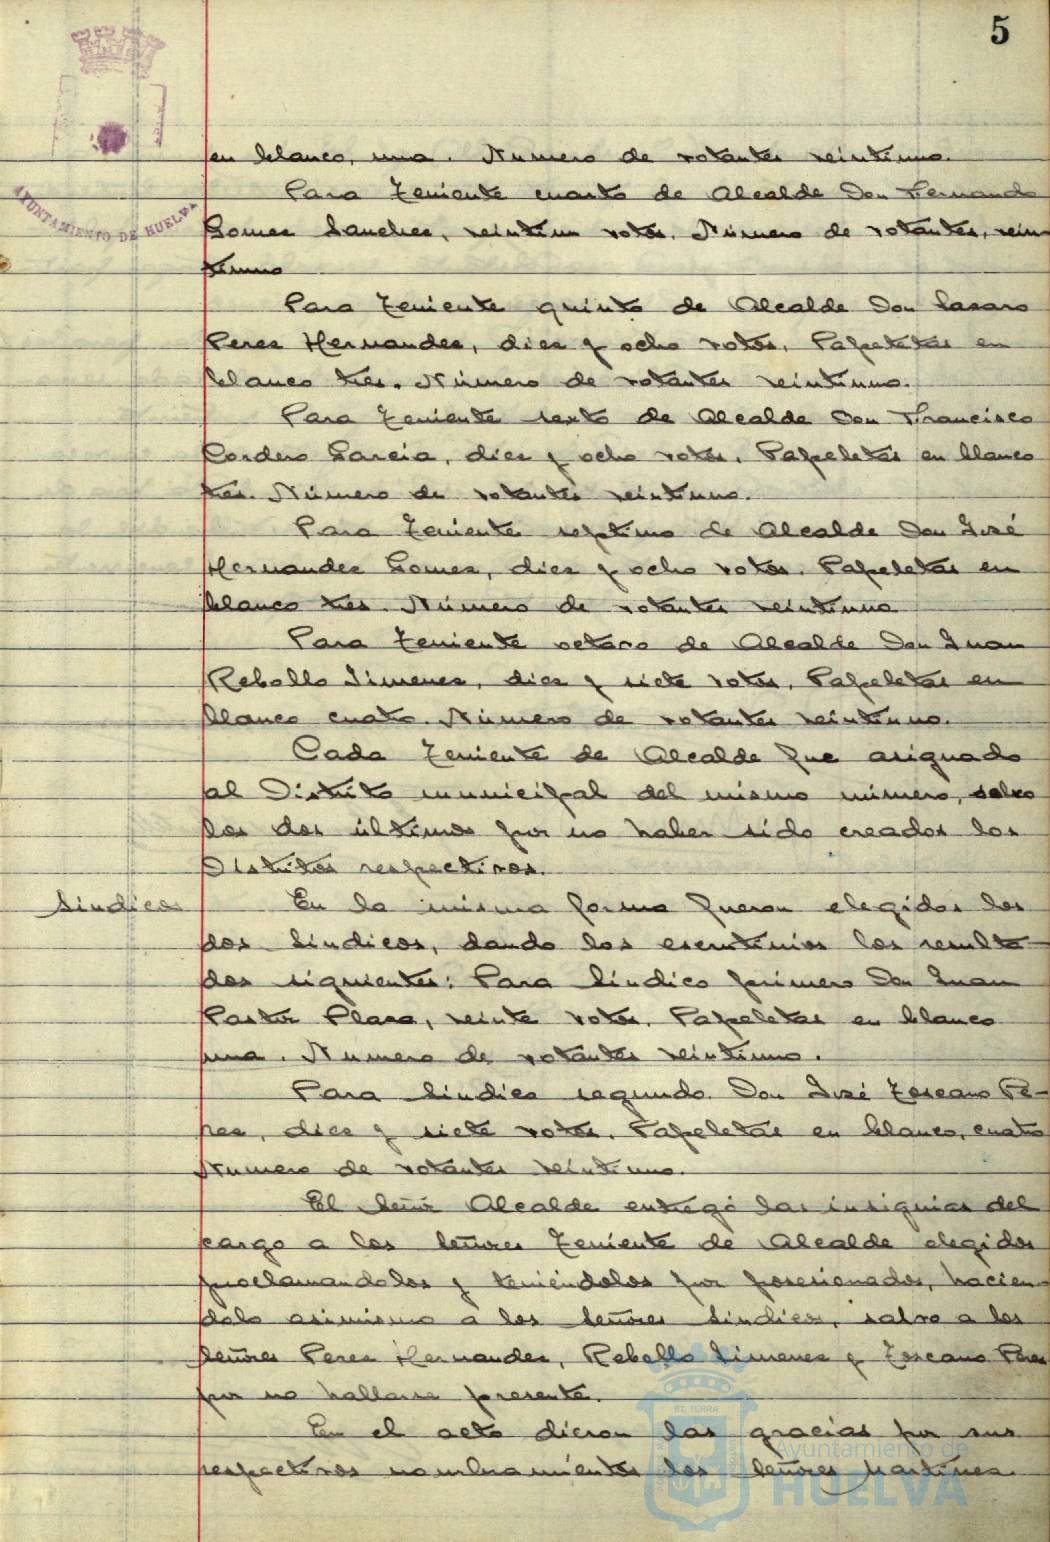 5
AYUNTAMIENTO DE HUELVA
en blanco, una. Numero de votantes veintiuno.
Para Teniente cuarto de Alcalde Don Fernando
Gomez Sanchez, veintiun votos. Número de votantes, vein-
tiuno
Para Teniente quinto de Alcalde Don Lazaro
Perez Hernandez, diez y ocho votos. Papeletas en
blanco tres. Número de votantes veintiuno.
Para Teniente sexto de Alcalde Don Francisco
Cordero Garcia, diez y ocho votos. Papeletas en blanco
tres. Número de votantes veintiuno.
Para Teniente septimo de Alcalde Don José
Hernandez Gomez, diez y ocho votos. Papeletas en
blanco tres. Número de votantes veintiuno
Para Teniente octavo de Alcalde Don Juan
Rebollo Jimenez, diez y siete votos. Papeletas en
blanco cuatro. Número de votantes veintiuno.
Cada Teniente de Alcalde fue asignado
al Distrito municipal del mismo número, salvo
los dos últimos por no haber sido creados los
Distritos respectivos.
Sindicos
En la misma forma fueron elegidos los
dos Sindicos, dando los escrutinios los resulta-
dos siguientes: Para Sindico primero Don Juan
Pastor Plaza, veinte votos. Papeletas en blanco
una. Numero de votantes veintiuno.
Para Sindico segundo Don José Toscano Pe-
rez, diez y siete votos. Papeletas en blanco, cuatro
Numero de votantes veintiuno.
El Señor Alcalde entregó las insignias del
cargo a los Señores Teniente de Alcalde elegidos
proclamandolos y teniéndolos por posesionados, hacien-
dolo asimismo a los Señores Sindicos, salvo a los
Señores Perez Hernandez, Rebollo Jimenez y Toscano Perez
por no hallarse presente.
En el acto dieron las gracias por sus
respectivos nombramientos los Señores Martinez
Ayuntamiento de
HUELVA